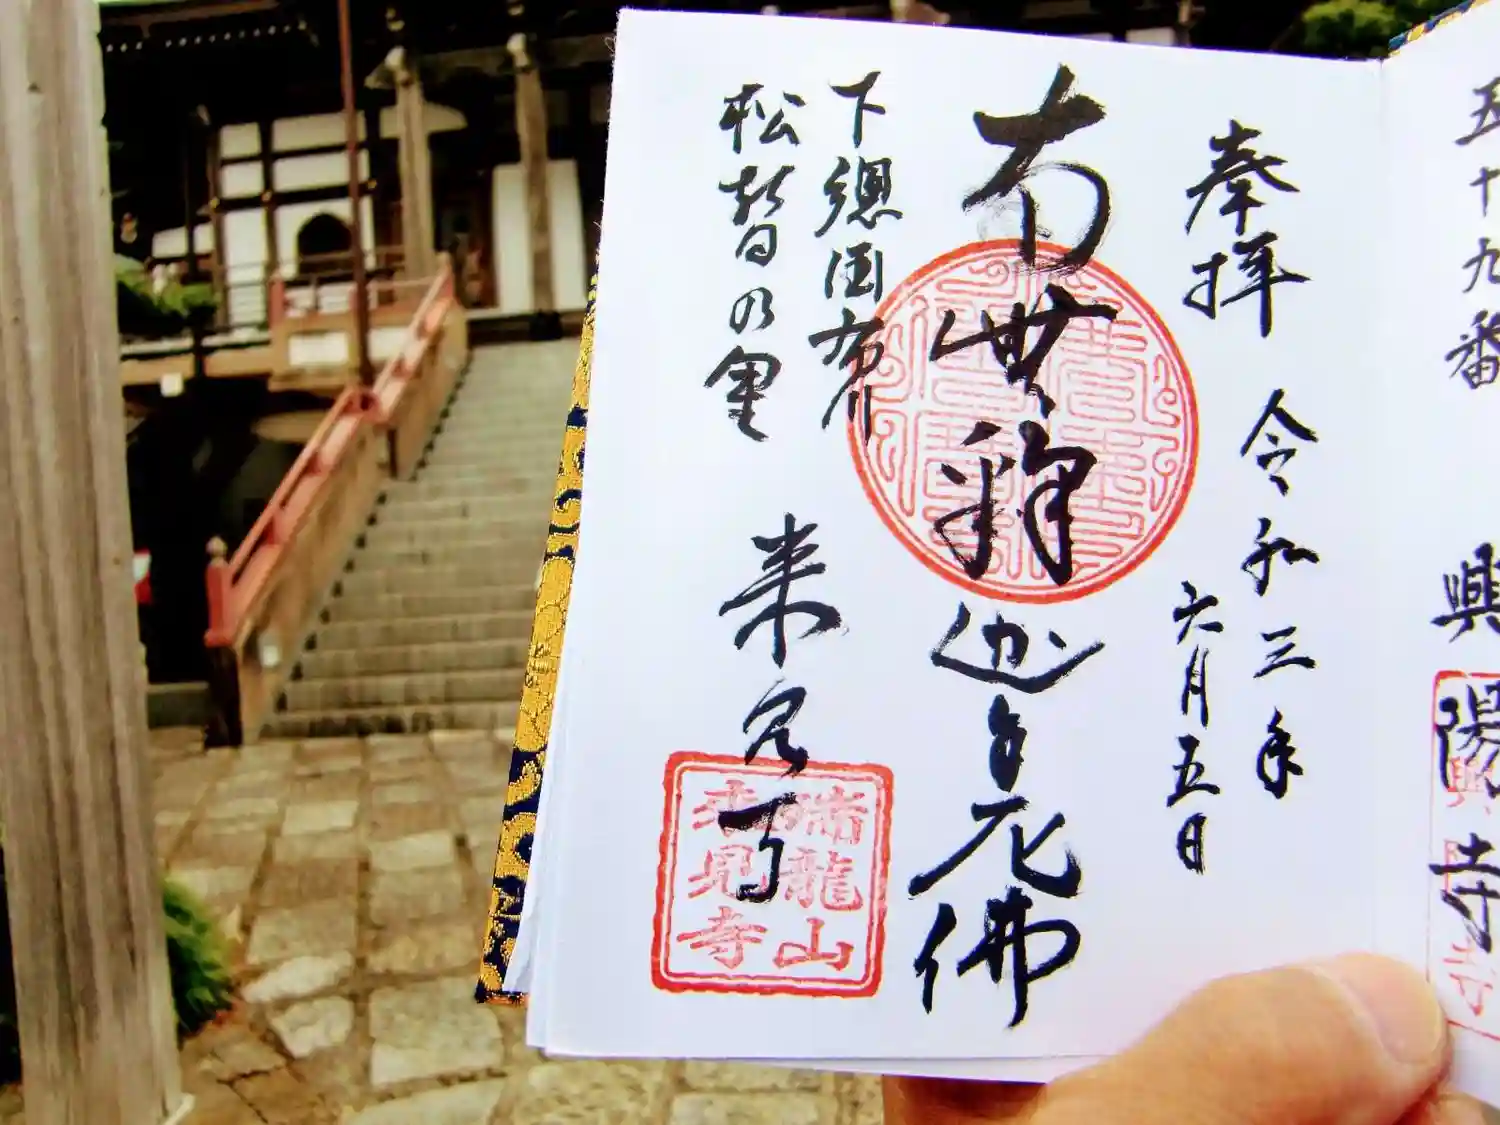 五十九番
興陽寺
奉拝
令和三年
六月五日
南無釋迦牟尼佛
下總国布川
松替乃里
来見寺
瑞龍山
来見寺